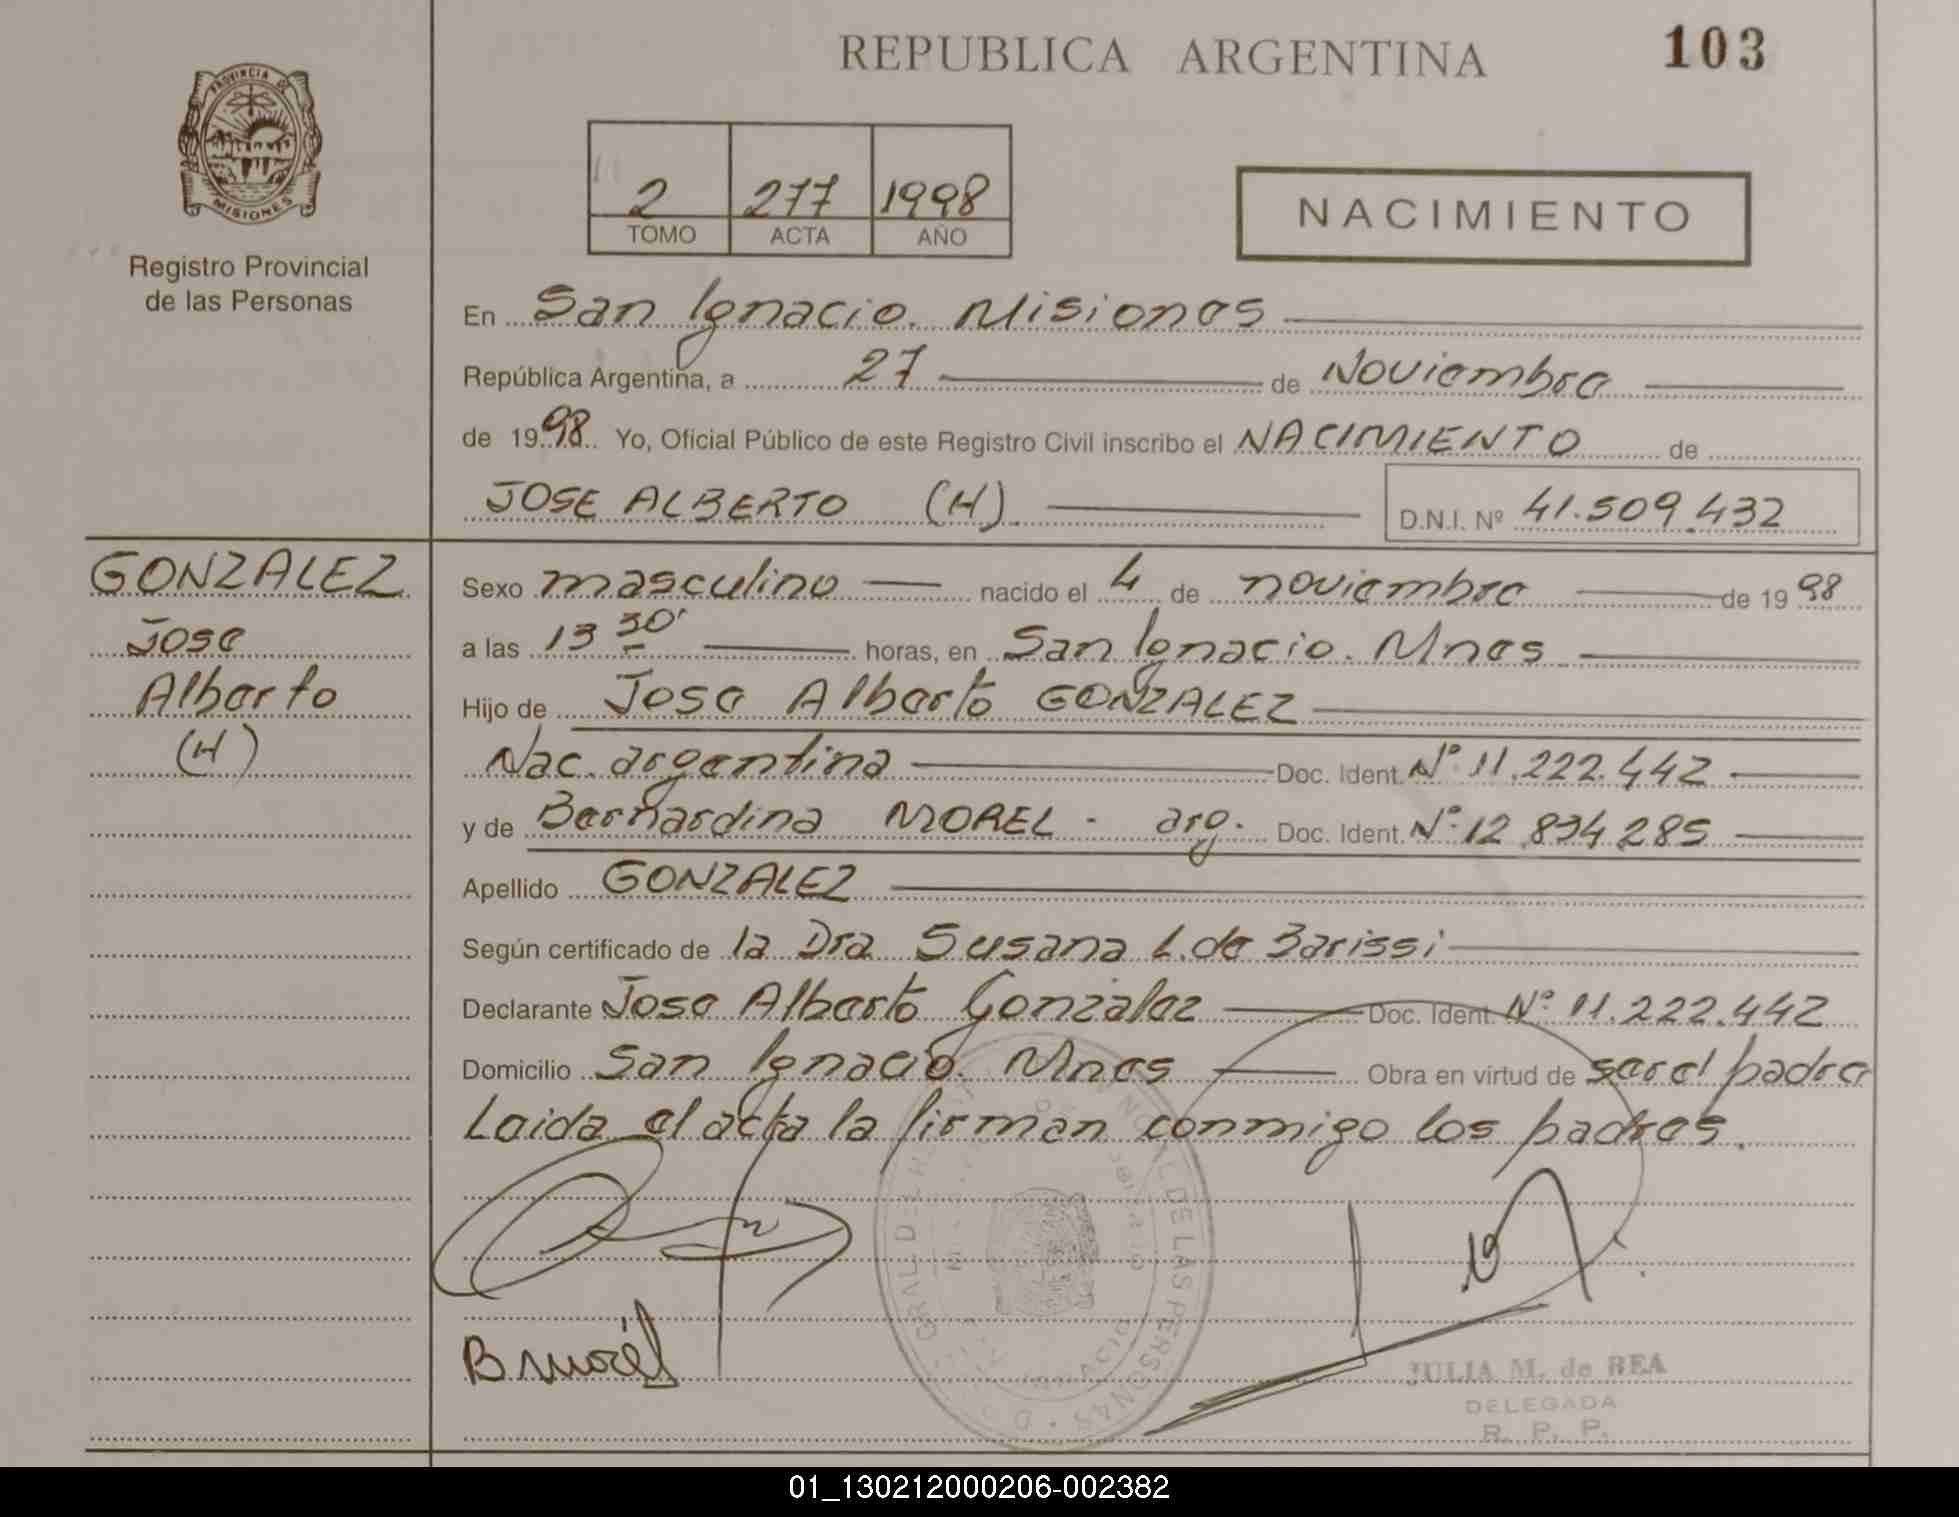 REPUBLICA ARGENTINA
103
PROVINCIA DE
MISIONES
Registro Provincial
de las Personas
2 277 1998
TOMO ACTA AÑO
NACIMIENTO
En San Ignacio. Misiones
República Argentina, a 27 de Noviembre
de 1998 Yo, Oficial Público de este Registro Civil inscribo el NACIMIENTO de
JOSE ALBERTO (H). D.N.I. Nº 41.509.432
GONZALEZ
Jose
Alberto
(H)
Sexo masculino nacido el 4 de noviembre de 1998
a las 13 30' horas, en San Ignacio. Mnes
Hijo de Jose Alberto GONZALEZ
Nac. argentina Doc. Ident. Nº 11.222.442
y de Bernardina MOREL - arg. Doc. Ident. Nº 12.834.285
Apellido GONZALEZ
Según certificado de la Dra Susana L. de Barissi
Declarante Jose Alberto Gonzalez Doc. Ident. Nº 11.222.442
Domicilio San Ignacio. Mnes Obra en virtud de ser el padre
Leida el acta la firman conmigo los padres.
B morel
JULIA M. de REA
DELEGADA
R. P. P.
01_130212000206-002382